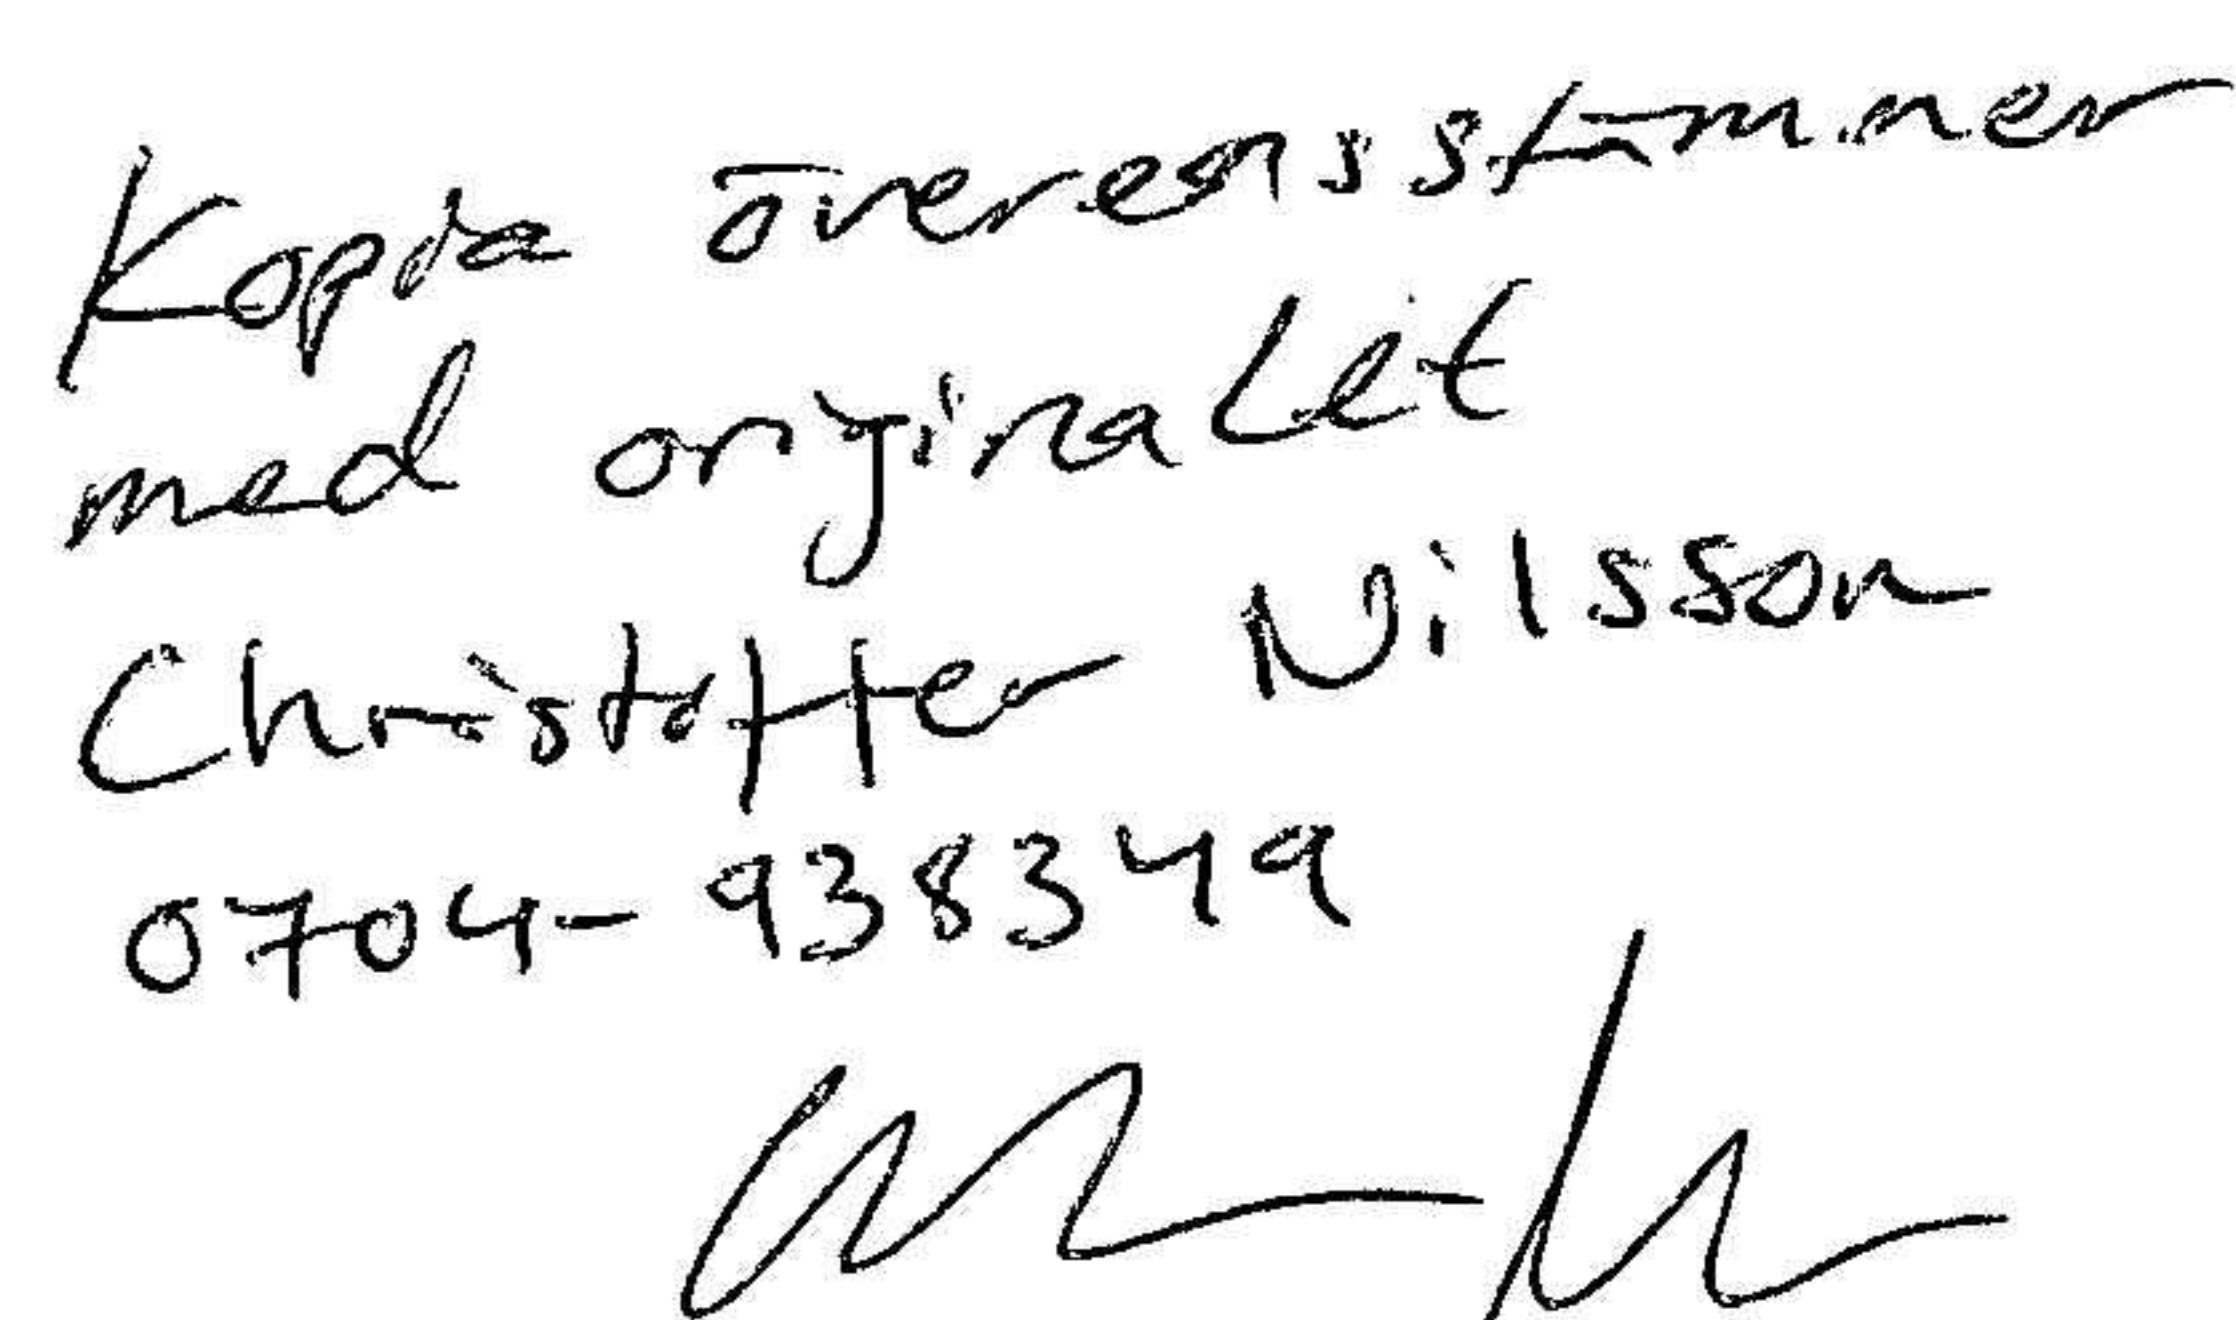 Kopia överensstämmer
med originalet
Christoffer Nilsson
0704-938349